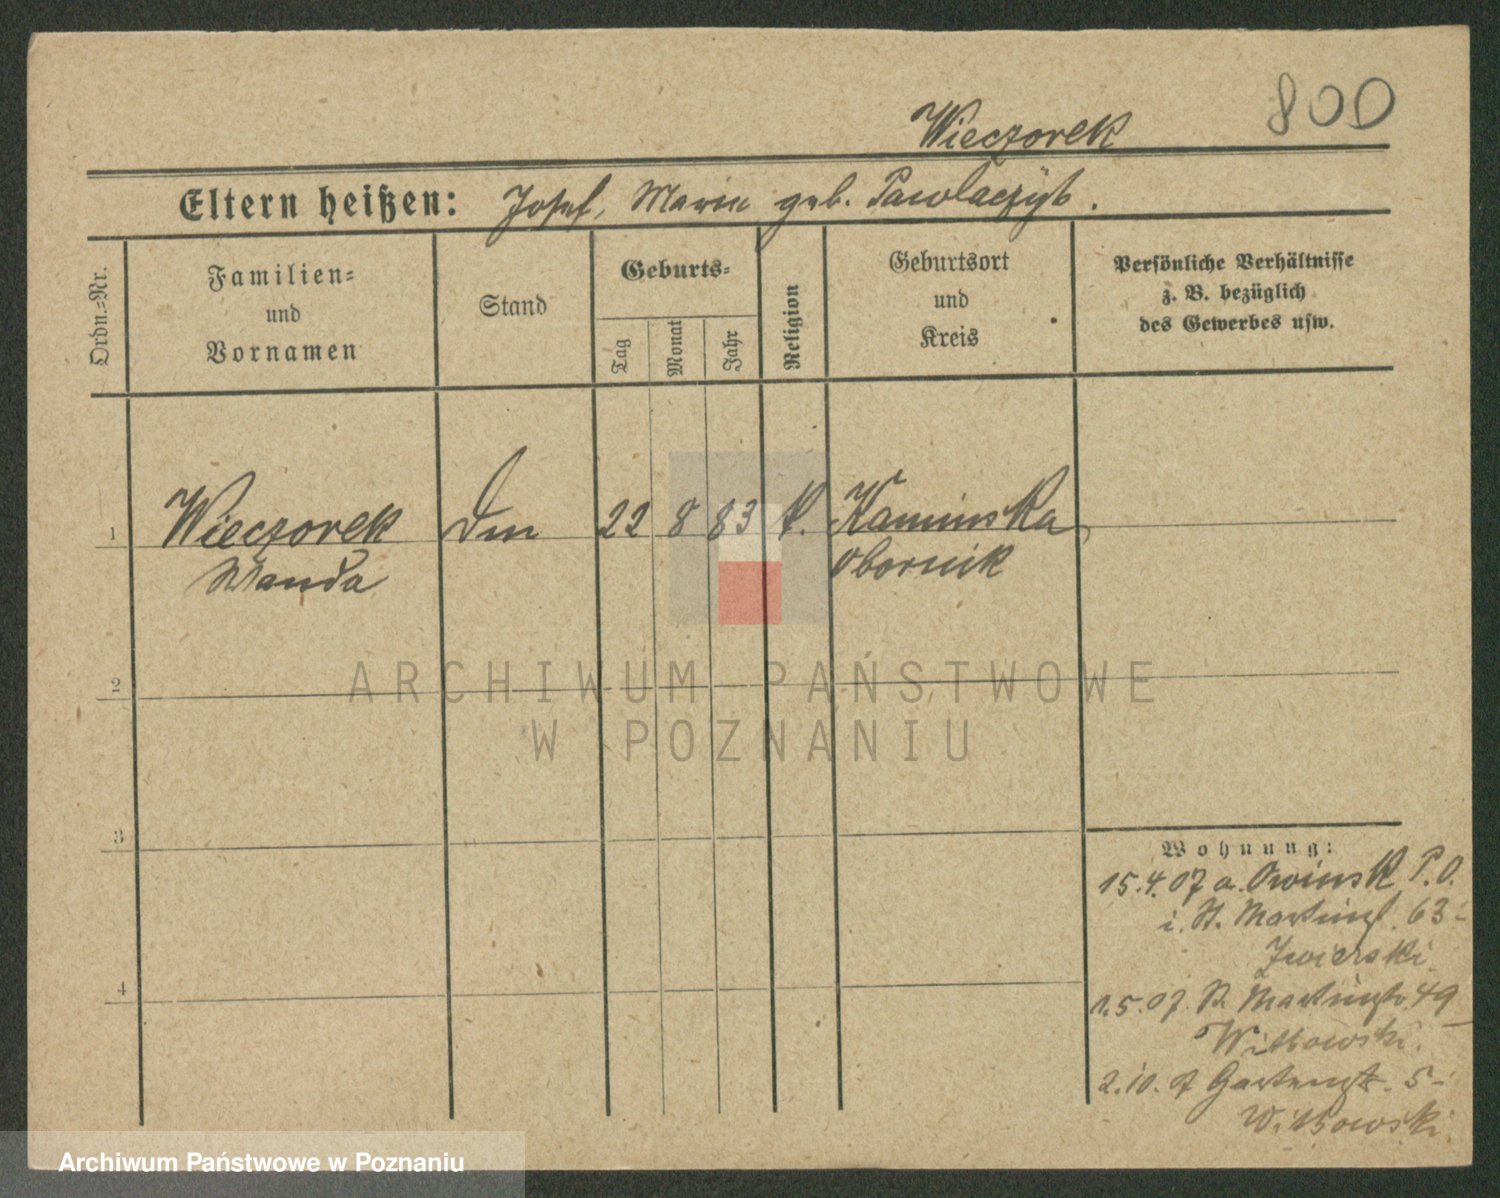 800
Wieczorek
Eltern heißen: Josef, Maria geb. Pawlaczyk.
Ordn.-Nr.
Familien-
und
Vornamen
Stand
Geburts-
Tag
Monat
Jahr
Religion
Geburtsort
und
Kreis
Persönliche Verhältnisse
z. B. bezüglich
des Gewerbes usw.
1 Wieczorek 22 8 83 k. Kaminska
Wanda Obornik
2
3
4
Wohnung:
15.4.07 a. Owinsk P.O.
i. St. Martinst. 63-
Zwierski
1.5.07. St. Martinstr. 49
Witkowski.
2.10.7 Gartenstr. 5-
Witkowski.
ARCHIWUM PAŃSTWOWE
W POZNANIU
Archiwum Państwowe w Poznaniu